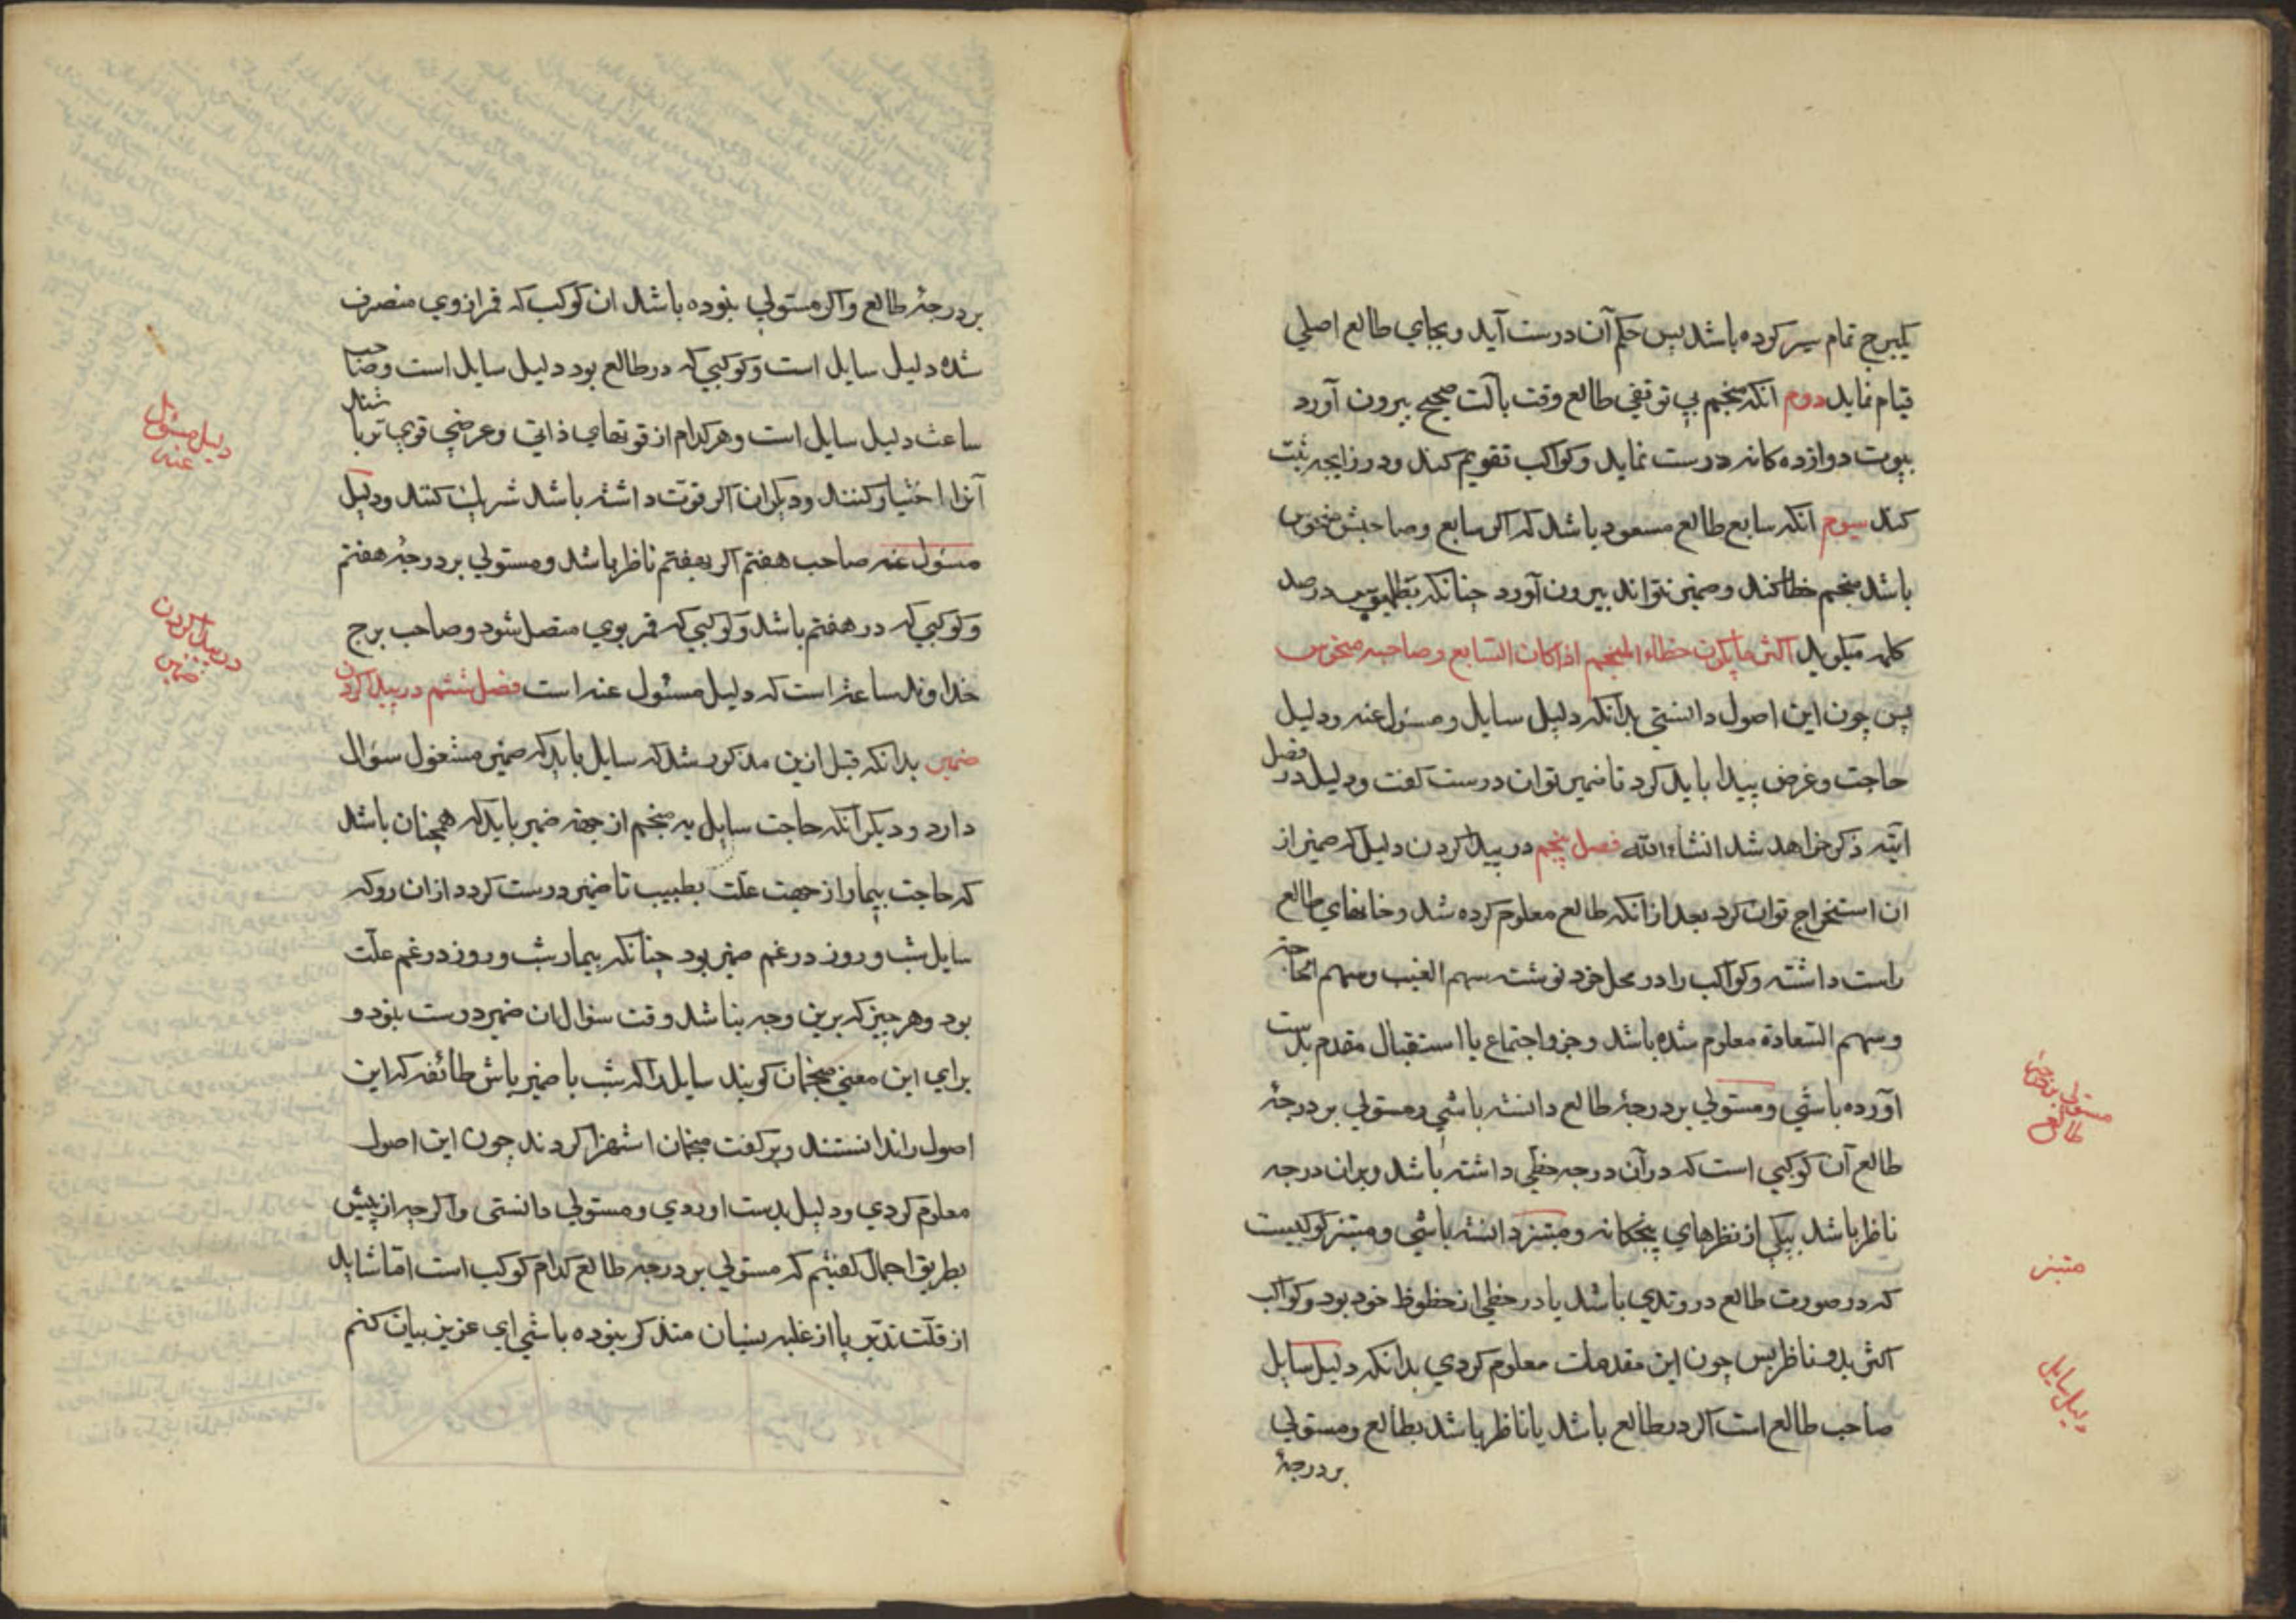 یکبرج تمام سیر کرده باشد پس حکم آن درست آید و بجای طالع اصلی
قیام نماید دوم انکه منجم بی توقفی طالع وقت بآلت صحیح بیرون آورد
بیوت دوازده کانه درست نماید و کواکب تقویم کند و در زایجه ثبت
کند سیوم انکه سابع طالع مسعود باشد که اکر سابع و صاحبش منحوس
باشد منجم خطا کند و ضمیر نتواند بیرون آورد چنانکه بطلمیوس در صد
کلمه میکوید اکثر ما یکون خطاء المنجم اذا کان السابع و صاحبه منحوس
پس چون این اصول دانستی بدانکه دلیل سایل و مسئول عنه و دلیل
حاجت و غرض پیدا باید کرد تا ضمیر توان درست کفت و دلیل در فصل
آتیه ذکر خواهد شد انشاء الله فصل پنجم در پیدا کردن دلیل که ضمیر از
ان استخراج توان کرد بعد از انکه طالع معلوم کرده شد و خانهای طالع
راست داشته و کواکب را در محل خود نوشته سهم الغیب و سهم الحاجة
و سهم السعادة معلوم شده باشد و جزو اجتماع یا استقبال مقدم بدست
آورده باشی و مستولی بر درجۀ طالع دانسته باشی و مستولی بر درجۀ
طالع آن کوکبی است که در آن درجه حظی داشته باشد و بران درجه
ناظر باشد بیکی از نظرهای پنجکانه و مبتز دانسته باشی و مبتز کوکبیست
که در صورت طالع در وتدی باشد یا در حظی از حظوظ خود بود و کواکب
اکثر بدو ناظر پس چون این مقدمات معلوم کردی بدانکه دلیل سایل
صاحب طالع است اکر در طالع باشد یا ناظر باشد بطالع و مستولی
بر درجۀ
مستولی بر درجۀ
طالع
مبتز
دلیل سایل
بر درجۀ طالع و اکر مستولی نبوده باشد ان کوکب که قمر از وی منصرف
شده دلیل سایل است و کوکبی که در طالع بود دلیل سایل است و صاحب
ساعت دلیل سایل است و هر کدام از قوتهای ذاتی و عرضی قوی تر باشند
آنرا اختیار کنند و دیکران اکر قوت داشته باشد شریک کنند و دلیل
مسئول عنه صاحب هفتم اکر بهفتم ناظر باشد و مستولی بر درجۀ هفتم
و کوکبی که در هفتم باشد و کوکبی که قمر بوی متصل شود و صاحب برج
خداوند ساعت است که دلیل مسئول عنه است فصل ششم در پیدا کردن
ضمیر بدانکه قبل ازین مذکور شد که سایل باید که ضمیر مشغول سؤال
دارد و دیکر آنکه حاجت سایل به منجم از جهة ضمیر باید که همچنان باشد
که حاجت بیمار از جهت علت بطبیب تا ضمیر درست کردد از ان رو که
سایل شب و روز در غم ضمیر بود چنانکه بیمار شب و روز در غم علت
بود و هر چیز که برین وجه نباشد وقت سؤال ان ضمیر درست نبود و
برای این معنی منجمان کویند سایل را که شب با ضمیر باش طائفه که این
اصول را ندانستند و بر کفت منجمان استهزا کردند چون این اصول
معلوم کردی و دلیل بدست اوردی و مستولی دانستی و اکرچه از پیش
بطریق اجمال کفتیم که مستولی بر درجه طالع کدام کوکب است اما شاید
از قلت تدبر یا از غلبه نسیان متذکر نبوده باشی ای عزیز بیان کنم
دلیل مسئول
عنه
در پیدا کردن
ضمیر